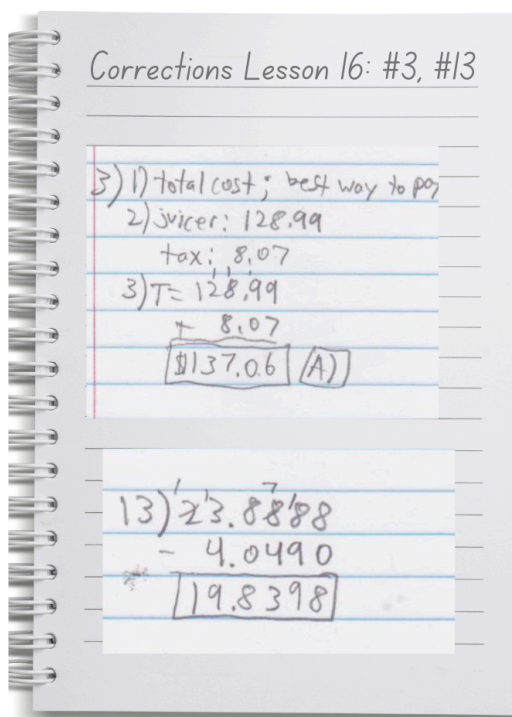 Corrections Lesson 16: #3, #13
3) 1) total cost; best way to pay
2) juicer: 128.99
tax: 8.07
3) T= 128.99
+ 8.07
$137.06 A)
13) 23.8888
- 4.0490
19.8398